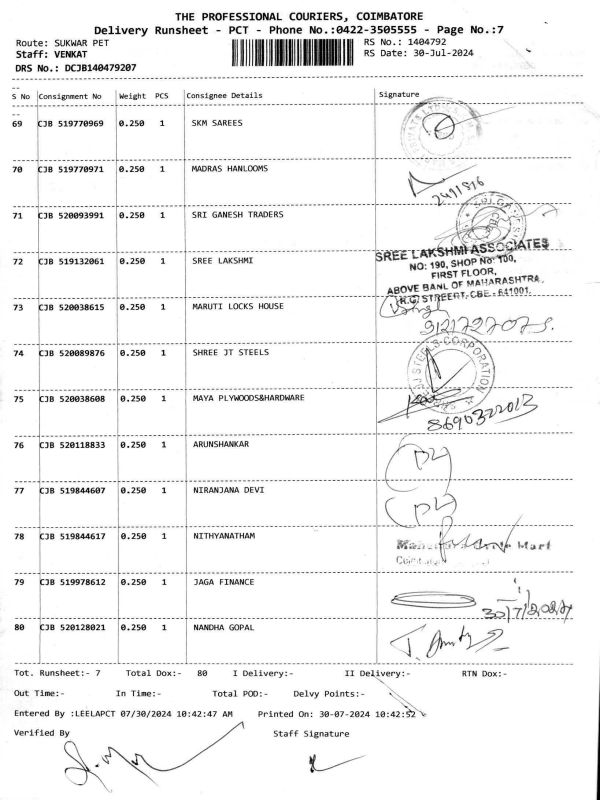 THE PROFESSIONAL COURIERS, COIMBATORE
Delivery Runsheet - PCT - Phone No.:0422-3505555 - Page No.:7
Route: SUKWAR PET RS No.: 1404792
Staff: VENKAT RS Date: 30-Jul-2024
DRS No.: DCJB140479207
S No Consignment No Weight PCS Consignee Details Signature
69 CJB 519770969 0.250 1 SKM SAREES
70 CJB 519770971 0.250 1 MADRAS HANLOOMS
71 CJB 520093991 0.250 1 SRI GANESH TRADERS
72 CJB 519132061 0.250 1 SREE LAKSHMI
SREE LAKSHMI ASSOCIATES
NO: 190, SHOP No: 100,
FIRST FLOOR,
ABOVE BANL OF MAHARASHTRA,
STREERT, CBE - 641001.
73 CJB 520038615 0.250 1 MARUTI LOCKS HOUSE
74 CJB 520089876 0.250 1 SHREE JT STEELS
STEELS CORPORATION
75 CJB 520038608 0.250 1 MAYA PLYWOODS&HARDWARE
8690322013
76 CJB 520118833 0.250 1 ARUNSHANKAR
77 CJB 519844607 0.250 1 NIRANJANA DEVI
78 CJB 519844617 0.250 1 NITHYANATHAM
Mart
79 CJB 519978612 0.250 1 JAGA FINANCE
30/7/2024
80 CJB 520128021 0.250 1 NANDHA GOPAL
Tot. Runsheet:- 7 Total Dox:- 80 I Delivery:- II Delivery:- RTN Dox:-
Out Time:- In Time:- Total POD:- Delvy Points:-
Entered By :LEELAPCT 07/30/2024 10:42:47 AM Printed On: 30-07-2024 10:42:52
Verified By Staff Signature